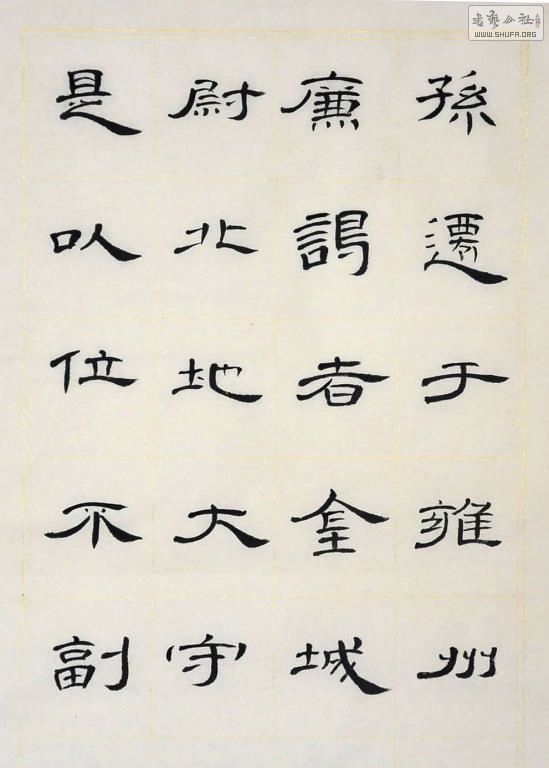 孫遷于雍州
廉謁者金城
尉北地大守
是以位不副
書藝公社
WWW.SHUFA.ORG